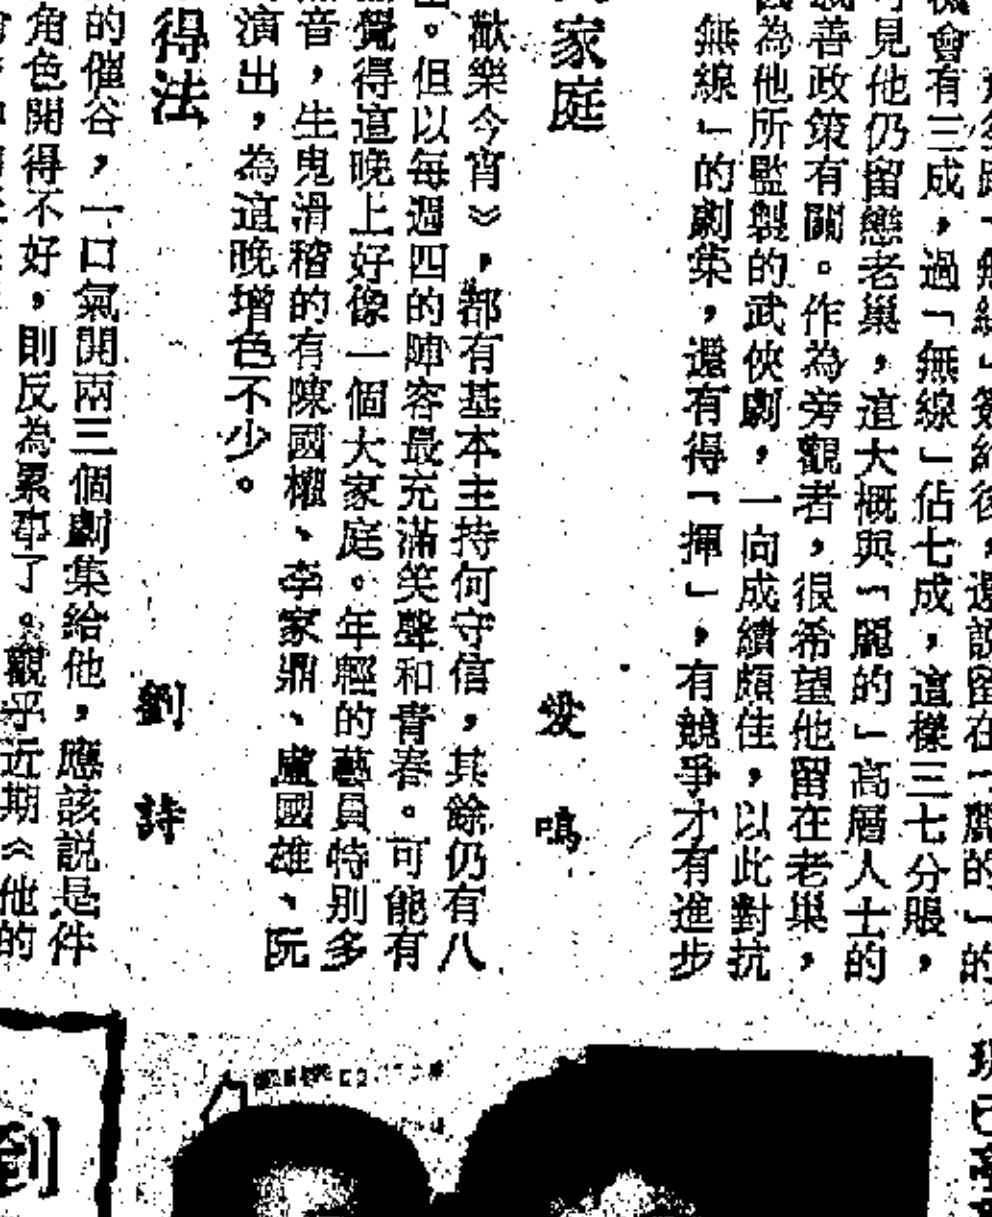 無線」簽約後，還說留在「麗的」的
機會有三成，過「無線」佔七成，這樣三七分賬，
可見他仍留戀老巢，這大概與「麗的」高層人士的
善政策有關。作為旁觀者，很希望他留在老巢，
因為他所監製的武俠劇，一向成績頗佳，以此對抗
「無線」的劇集，還有得「揮」，有競爭才有進步
家庭
愛鳴
歡樂今宵》，都有基本主持何守信，其餘仍有八
。但以每週四的陣容最充滿笑聲和青春。可能有
覺得這晚上好像一個大家庭。年輕的藝員特別多
音，生鬼滑稽的有陳國權、李家鼎、盧國雄、阮
演出，為這晚增色不少。
得法
劉詩
的催谷，一口氣開兩三個劇集給他，應該說是件
角色開得不好，則反為累事了。觀乎近期《他的
現已
到